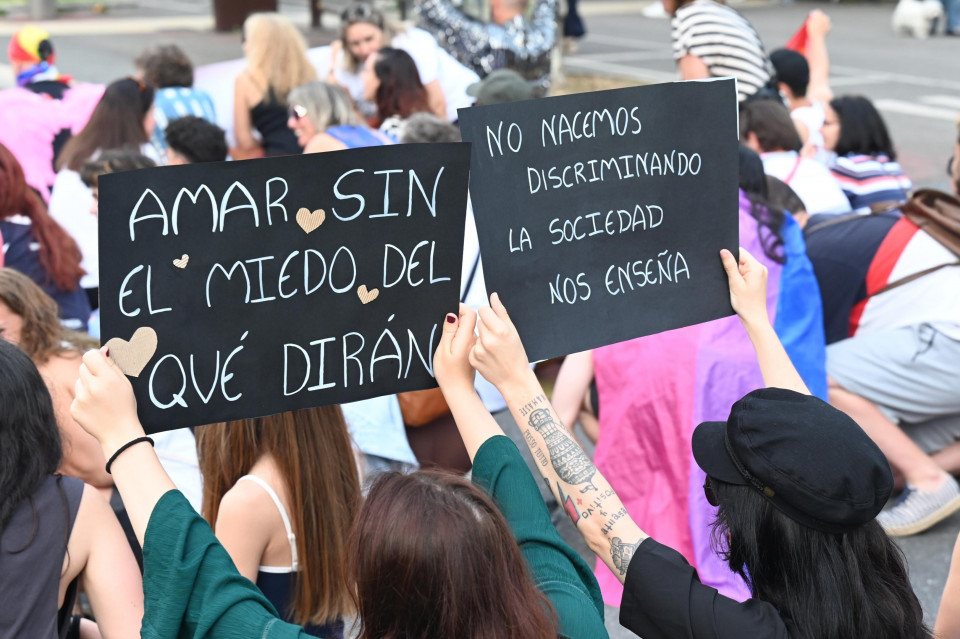 AMAR SIN
EL MIEDO DEL
QUÉ DIRÁN
NO NACEMOS
DISCRIMINANDO
LA SOCIEDAD
NOS ENSEÑA